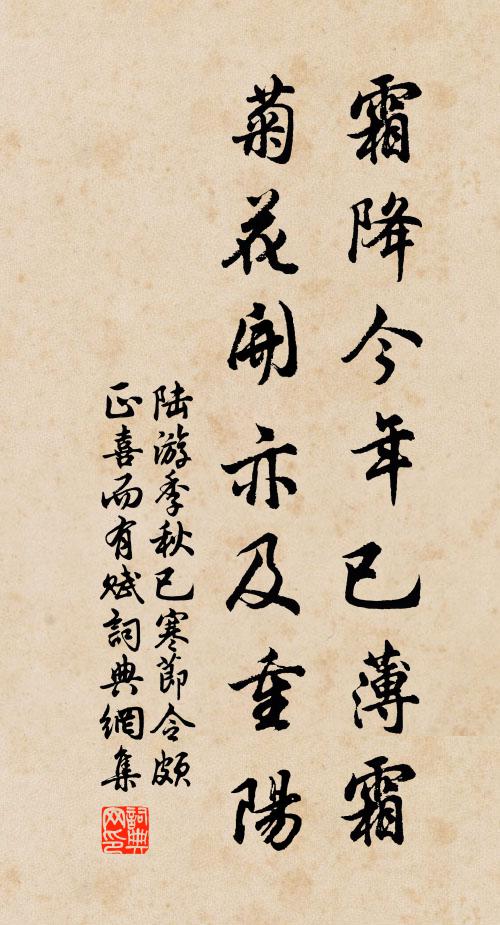 霜降今年已薄霜
菊花開亦及重陽
陆游季秋已寒節令頗
正喜而有赋詞典網集
詞典网印